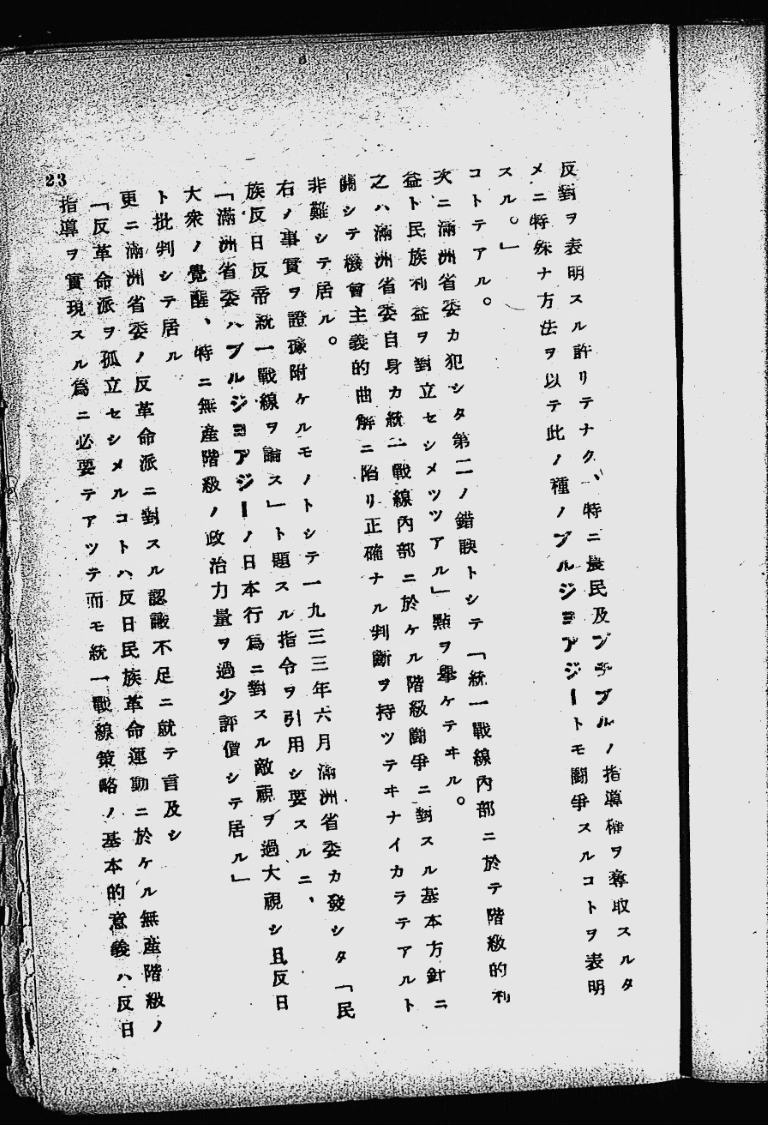 反對ヲ表明スル許リテナク、特ニ農民及プチブルノ指導權ヲ奪取スルタ
メニ特殊ナ方法ヲ以テ此ノ種ノブルジヨアジートモ鬪爭スルコトヲ表明
スル。」
コトテアル。
次ニ滿洲省委カ犯シタ第二ノ錯誤トシテ「統一戰線內部ニ於テ階級的利
益ト民族利益ヲ對立セシメツツアル」點ヲ擧ケテヰル。
之ハ滿洲省委自身カ統一戰線內部ニ於ケル階級鬪爭ニ對スル基本方針ニ
關シテ機會主義的曲解ニ陷リ正確ナル判斷ヲ持ツテヰナイカラテアルト
非難シテ居ル。
右ノ事實ヲ證據附ケルモノトシテ一九三三年六月滿洲省委カ發シタ「民
族反日反帝統一戰線ヲ論ス」ト題スル指令ヲ引用シ要スルニ、
「滿洲省委ハブルジヨアジーノ日本行爲ニ對スル敵視ヲ過大視シ且反日
大衆ノ覺醒、特ニ無產階級ノ政治力量ヲ過少評價シテ居ル」
ト批判シテ居ル
更ニ滿洲省委ノ反革命派ニ對スル認識不足ニ就テ言及シ
「反革命派ヲ孤立セシメルコトハ反日民族革命運動ニ於ケル無產階級ノ
指導ヲ實現スル爲ニ必要テアツテ而モ統一戰線策略ノ基本的意義ハ反日
23